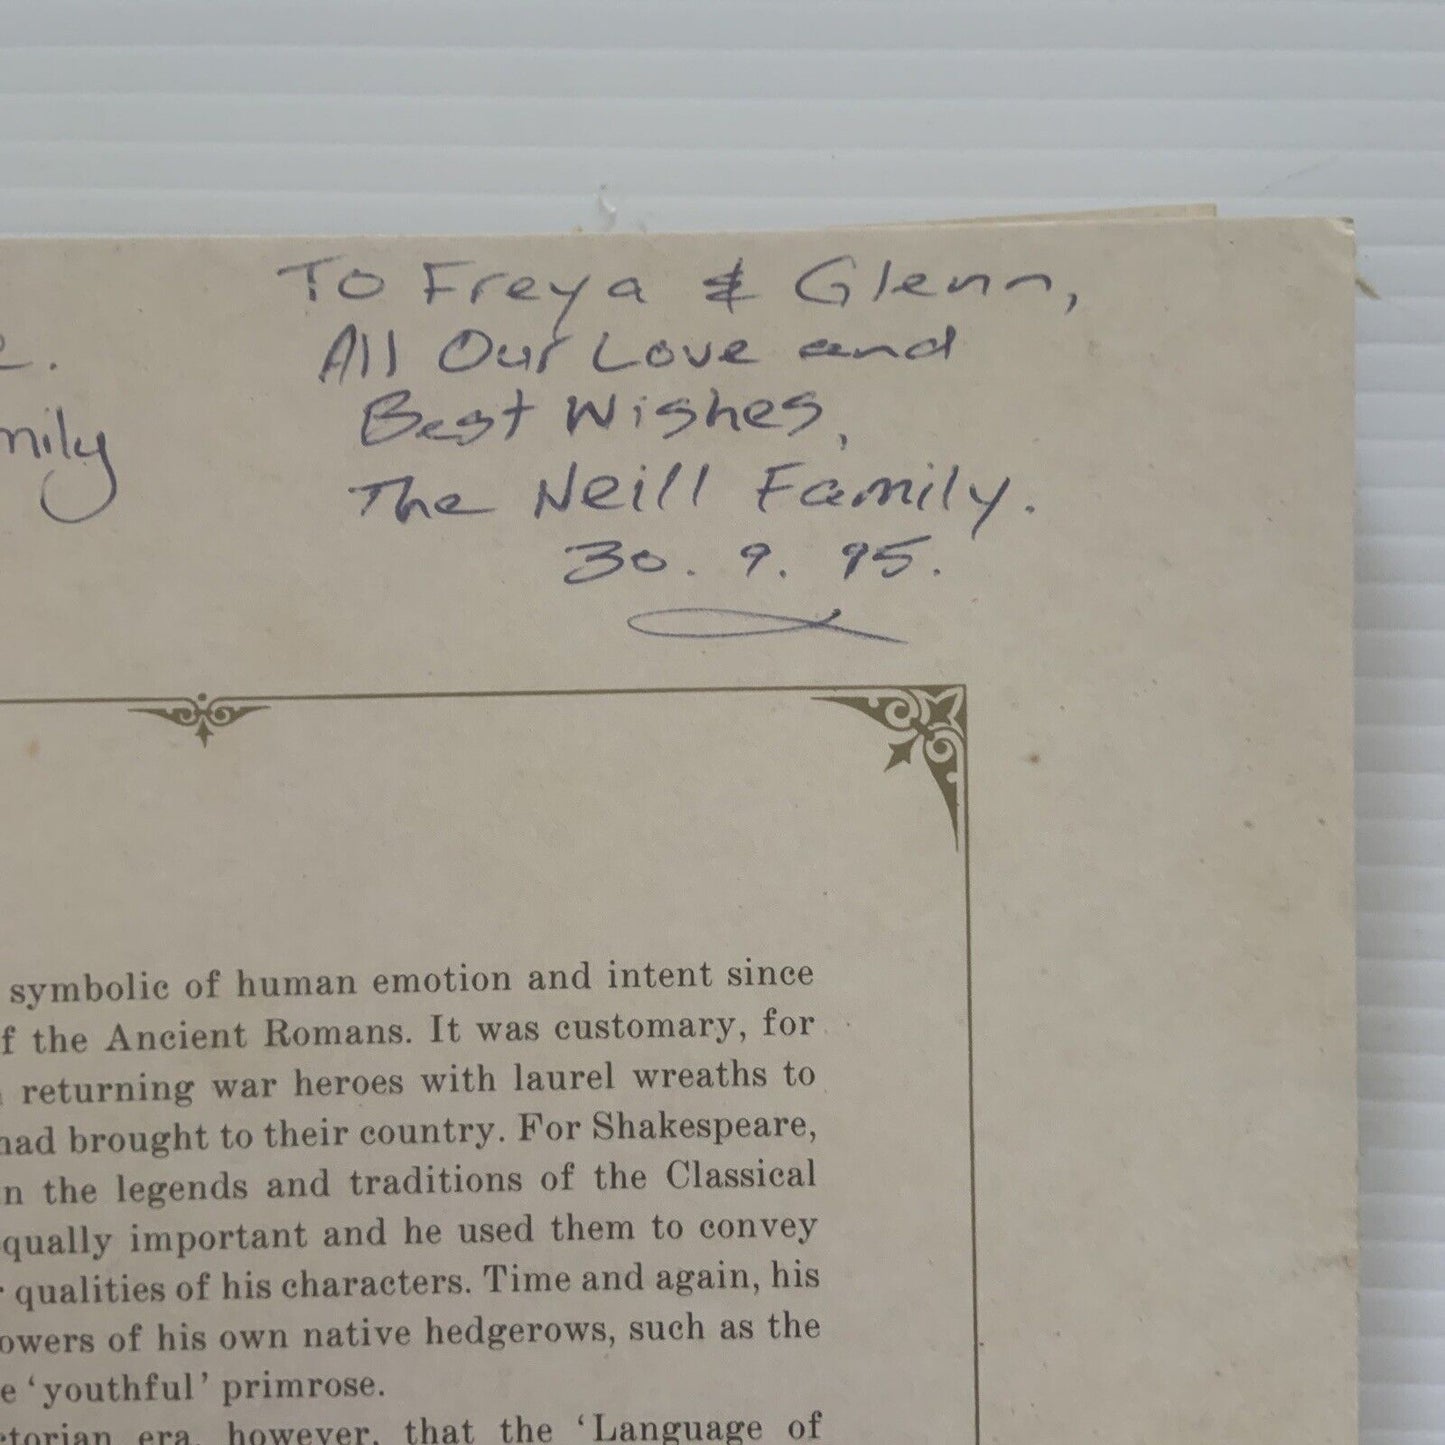 To Freya & Glenn,
All Our Love and
Best Wishes,
The Neill Family.
30. 9. 95.
symbolic of human emotion and intent since
the Ancient Romans. It was customary, for
returning war heroes with laurel wreaths to
had brought to their country. For Shakespeare,
the legends and traditions of the Classical
important and he used them to convey
qualities of his characters. Time and again, his
of his own native hedgerows, such as the
‘youthful’ primrose.
era, however, that the ‘Language of